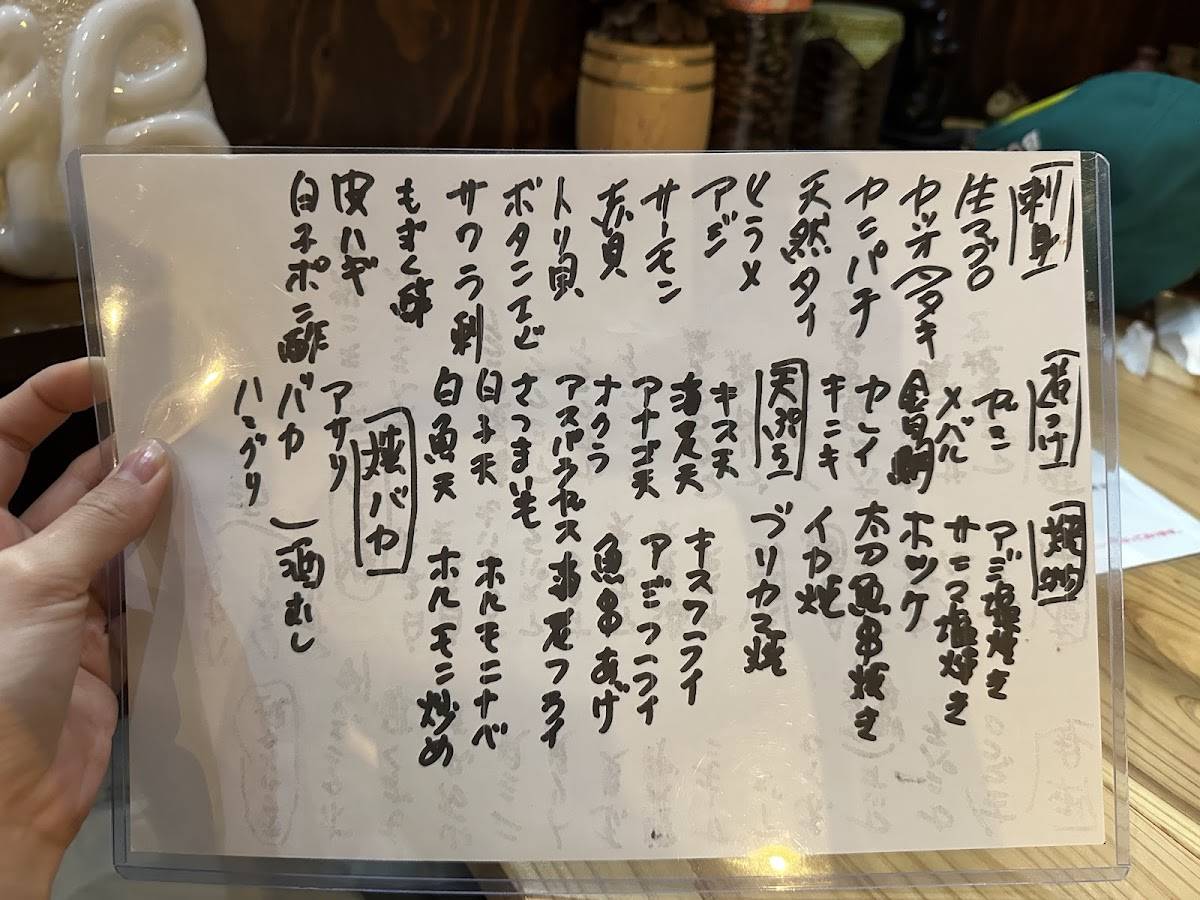 刺身
生マグロ
カツオ(タタキ
カンパチ
天然タイ
ヒラメ
アジ
サーモン
赤貝
トリ貝
ボタンエビ
サワラ刺
もずく酢
皮ハギ
白子ポン酢
煮つけ
メバル
金目鯛
カレイ
キンキ
天ぷら
キス天
アナゴ天
オクラ
アスパラガス
さつまいも
白子天
白魚天
焼物
アジ塩焼き
サンマ塩焼き
ホッケ
太刀魚串焼き
イカ焼
ブリカマ焼
キスフライ
アジフライ
魚串あげ
フライ
ホルモンナベ
ホルモン炒め
バカ
アサリ
バカ
ハマグリ
酒むし